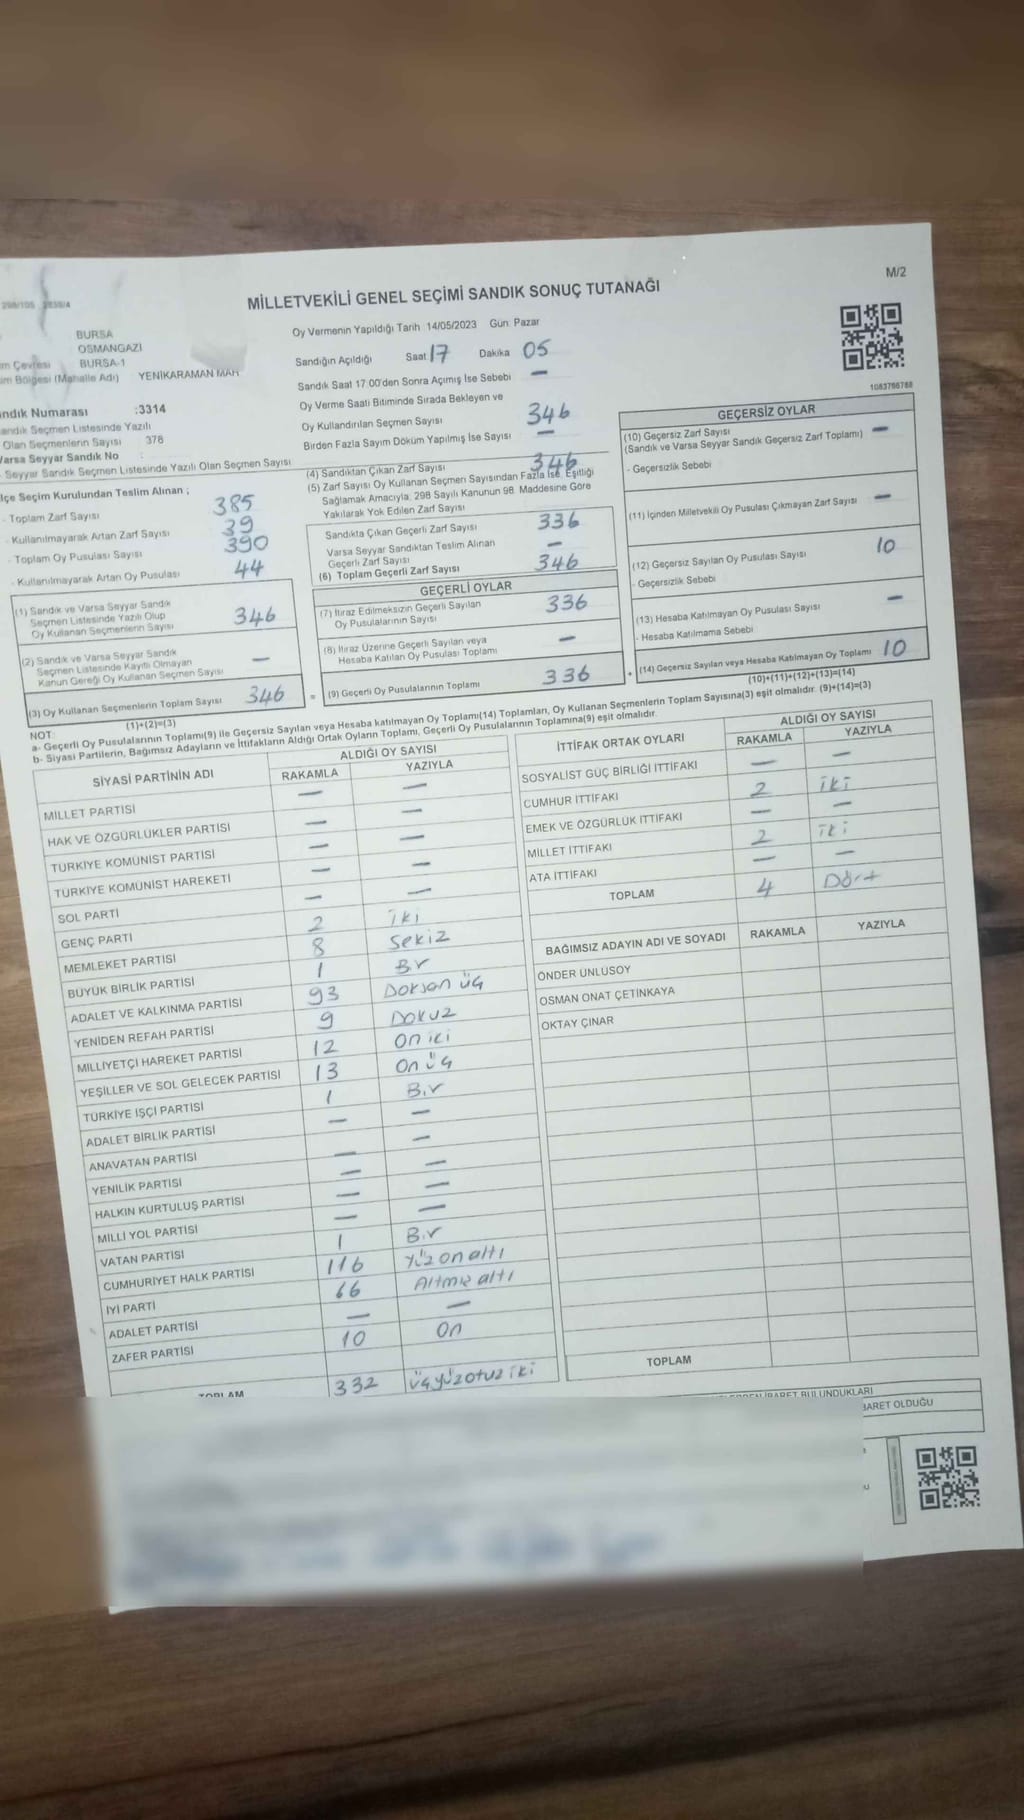 298/105
M/2
MİLLETVEKİLİ GENEL SEÇİMİ SANDIK SONUÇ TUTANAĞI
BURSA
OSMANGAZİ
BURSA-1
im Bölgesi (Mahalle Adı) YENİKARAMAN MAH
Oy Vermenin Yapıldığı Tarih 14/05/2023 Gün: Pazar
Sandığın Açıldığı Saat 17 Dakika 05
Sandık Saat 17:00'den Sonra Açımış İse Sebebi —
Oy Verme Saati Bitiminde Sırada Bekleyen ve
Oy Kullandırılan Seçmen Sayısı 346
Birden Fazla Sayım Döküm Yapılmış İse Sayısı —
1083786788
ndık Numarası :3314
andık Seçmen Listesinde Yazılı
Olan Seçmenlerin Sayısı : 378
Varsa Seyyar Sandık No :
Seyyar Sandık Seçmen Listesinde Yazılı Olan Seçmen Sayısı
lçe Seçim Kurulundan Teslim Alınan ;
- Toplam Zarf Sayısı 385
- Kullanılmayarak Artan Zarf Sayısı 39
- Toplam Oy Pusulası Sayısı 390
- Kullanılmayarak Artan Oy Pusulası 44
(1) Sandık ve Varsa Seyyar Sandık
Seçmen Listesinde Yazılı Olup
Oy Kullanan Seçmenlerin Sayısı 346
(2) Sandık ve Varsa Seyyar Sandık
Seçmen Listesinde Kayıtlı Olmayan
Kanun Gereği Oy Kullanan Seçmen Sayısı —
(3) Oy Kullanan Seçmenlerin Toplam Sayısı 346
(1)+(2)=(3)
(4) Sandıktan Çıkan Zarf Sayısı 346
(5) Zarf Sayısı Oy Kullanan Seçmen Sayısından Fazla İse, Eşitliği
Sağlamak Amacıyla, 298 Sayılı Kanunun 98. Maddesine Göre
Yakılarak Yok Edilen Zarf Sayısı
Sandıkta Çıkan Geçerli Zarf Sayısı 336
Varsa Seyyar Sandıktan Teslim Alınan
Geçerli Zarf Sayısı —
(6) Toplam Geçerli Zarf Sayısı 346
GEÇERLİ OYLAR
(7) İtiraz Edilmeksizin Geçerli Sayılan
Oy Pusulalarının Sayısı 336
(8) İtiraz Üzerine Geçerli Sayılan veya
Hesaba Katılan Oy Pusulası Toplamı —
= (9) Geçerli Oy Pusulalarının Toplamı 336
GEÇERSİZ OYLAR
(10) Geçersiz Zarf Sayısı —
(Sandık ve Varsa Seyyar Sandık Geçersiz Zarf Toplamı)
- Geçersizlik Sebebi
(11) İçinden Milletvekili Oy Pusulası Çıkmayan Zarf Sayısı —
(12) Geçersiz Sayılan Oy Pusulası Sayısı 10
- Geçersizlik Sebebi
(13) Hesaba Katılmayan Oy Pusulası Sayısı —
- Hesaba Katılmama Sebebi
+ (14) Geçersiz Sayılan veya Hesaba Katılmayan Oy Toplamı 10
(10)+(11)+(12)+(13)=(14)
NOT:
a- Geçerli Oy Pusulalarının Toplamı(9) ile Geçersiz Sayılan veya Hesaba katılmayan Oy Toplamı(14) Toplamları, Oy Kullanan Seçmenlerin Toplam Sayısına(3) eşit olmalıdır. (9)+(14)=(3)
b- Siyasi Partilerin, Bağımsız Adayların ve İttifakların Aldığı Ortak Oyların Toplamı, Geçerli Oy Pusulalarının Toplamına(9) eşit olmalıdır.
SİYASİ PARTİNİN ADI ALDIĞI OY SAYISI
RAKAMLA YAZIYLA
MİLLET PARTİSİ — —
HAK VE ÖZGÜRLÜKLER PARTİSİ — —
TÜRKİYE KOMÜNİST PARTİSİ — —
TÜRKİYE KOMÜNİST HAREKETİ — —
SOL PARTİ — —
GENÇ PARTİ 2 iki
MEMLEKET PARTİSİ 8 sekiz
BÜYÜK BİRLİK PARTİSİ 1 Bir
ADALET VE KALKINMA PARTİSİ 93 Doksan üç
YENİDEN REFAH PARTİSİ 9 Dokuz
MİLLİYETÇİ HAREKET PARTİSİ 12 On iki
YEŞİLLER VE SOL GELECEK PARTİSİ 13 On üç
TÜRKİYE İŞÇİ PARTİSİ 1 Bir
ADALET BİRLİK PARTİSİ — —
ANAVATAN PARTİSİ — —
YENİLİK PARTİSİ — —
HALKIN KURTULUŞ PARTİSİ — —
MİLLİ YOL PARTİSİ — —
VATAN PARTİSİ 1 Bir
CUMHURİYET HALK PARTİSİ 116 Yüz on altı
İYİ PARTİ 66 Altmış altı
ADALET PARTİSİ — —
ZAFER PARTİSİ 10 On
TOPLAM 332 üçyüzotuz iki
İTTİFAK ORTAK OYLARI ALDIĞI OY SAYISI
RAKAMLA YAZIYLA
SOSYALİST GÜÇ BİRLİĞİ İTTİFAKI — —
CUMHUR İTTİFAKI 2 iki
EMEK VE ÖZGÜRLÜK İTTİFAKI — —
MİLLET İTTİFAKI 2 iki
ATA İTTİFAKI — —
TOPLAM 4 Dört
BAĞIMSIZ ADAYIN ADI VE SOYADI RAKAMLA YAZIYLA
ÖNDER ÜNLÜSOY
OSMAN ONAT ÇETİNKAYA
OKTAY ÇINAR
TOPLAM
İBARET BULUNDUKLARI
BARET OLDUĞU